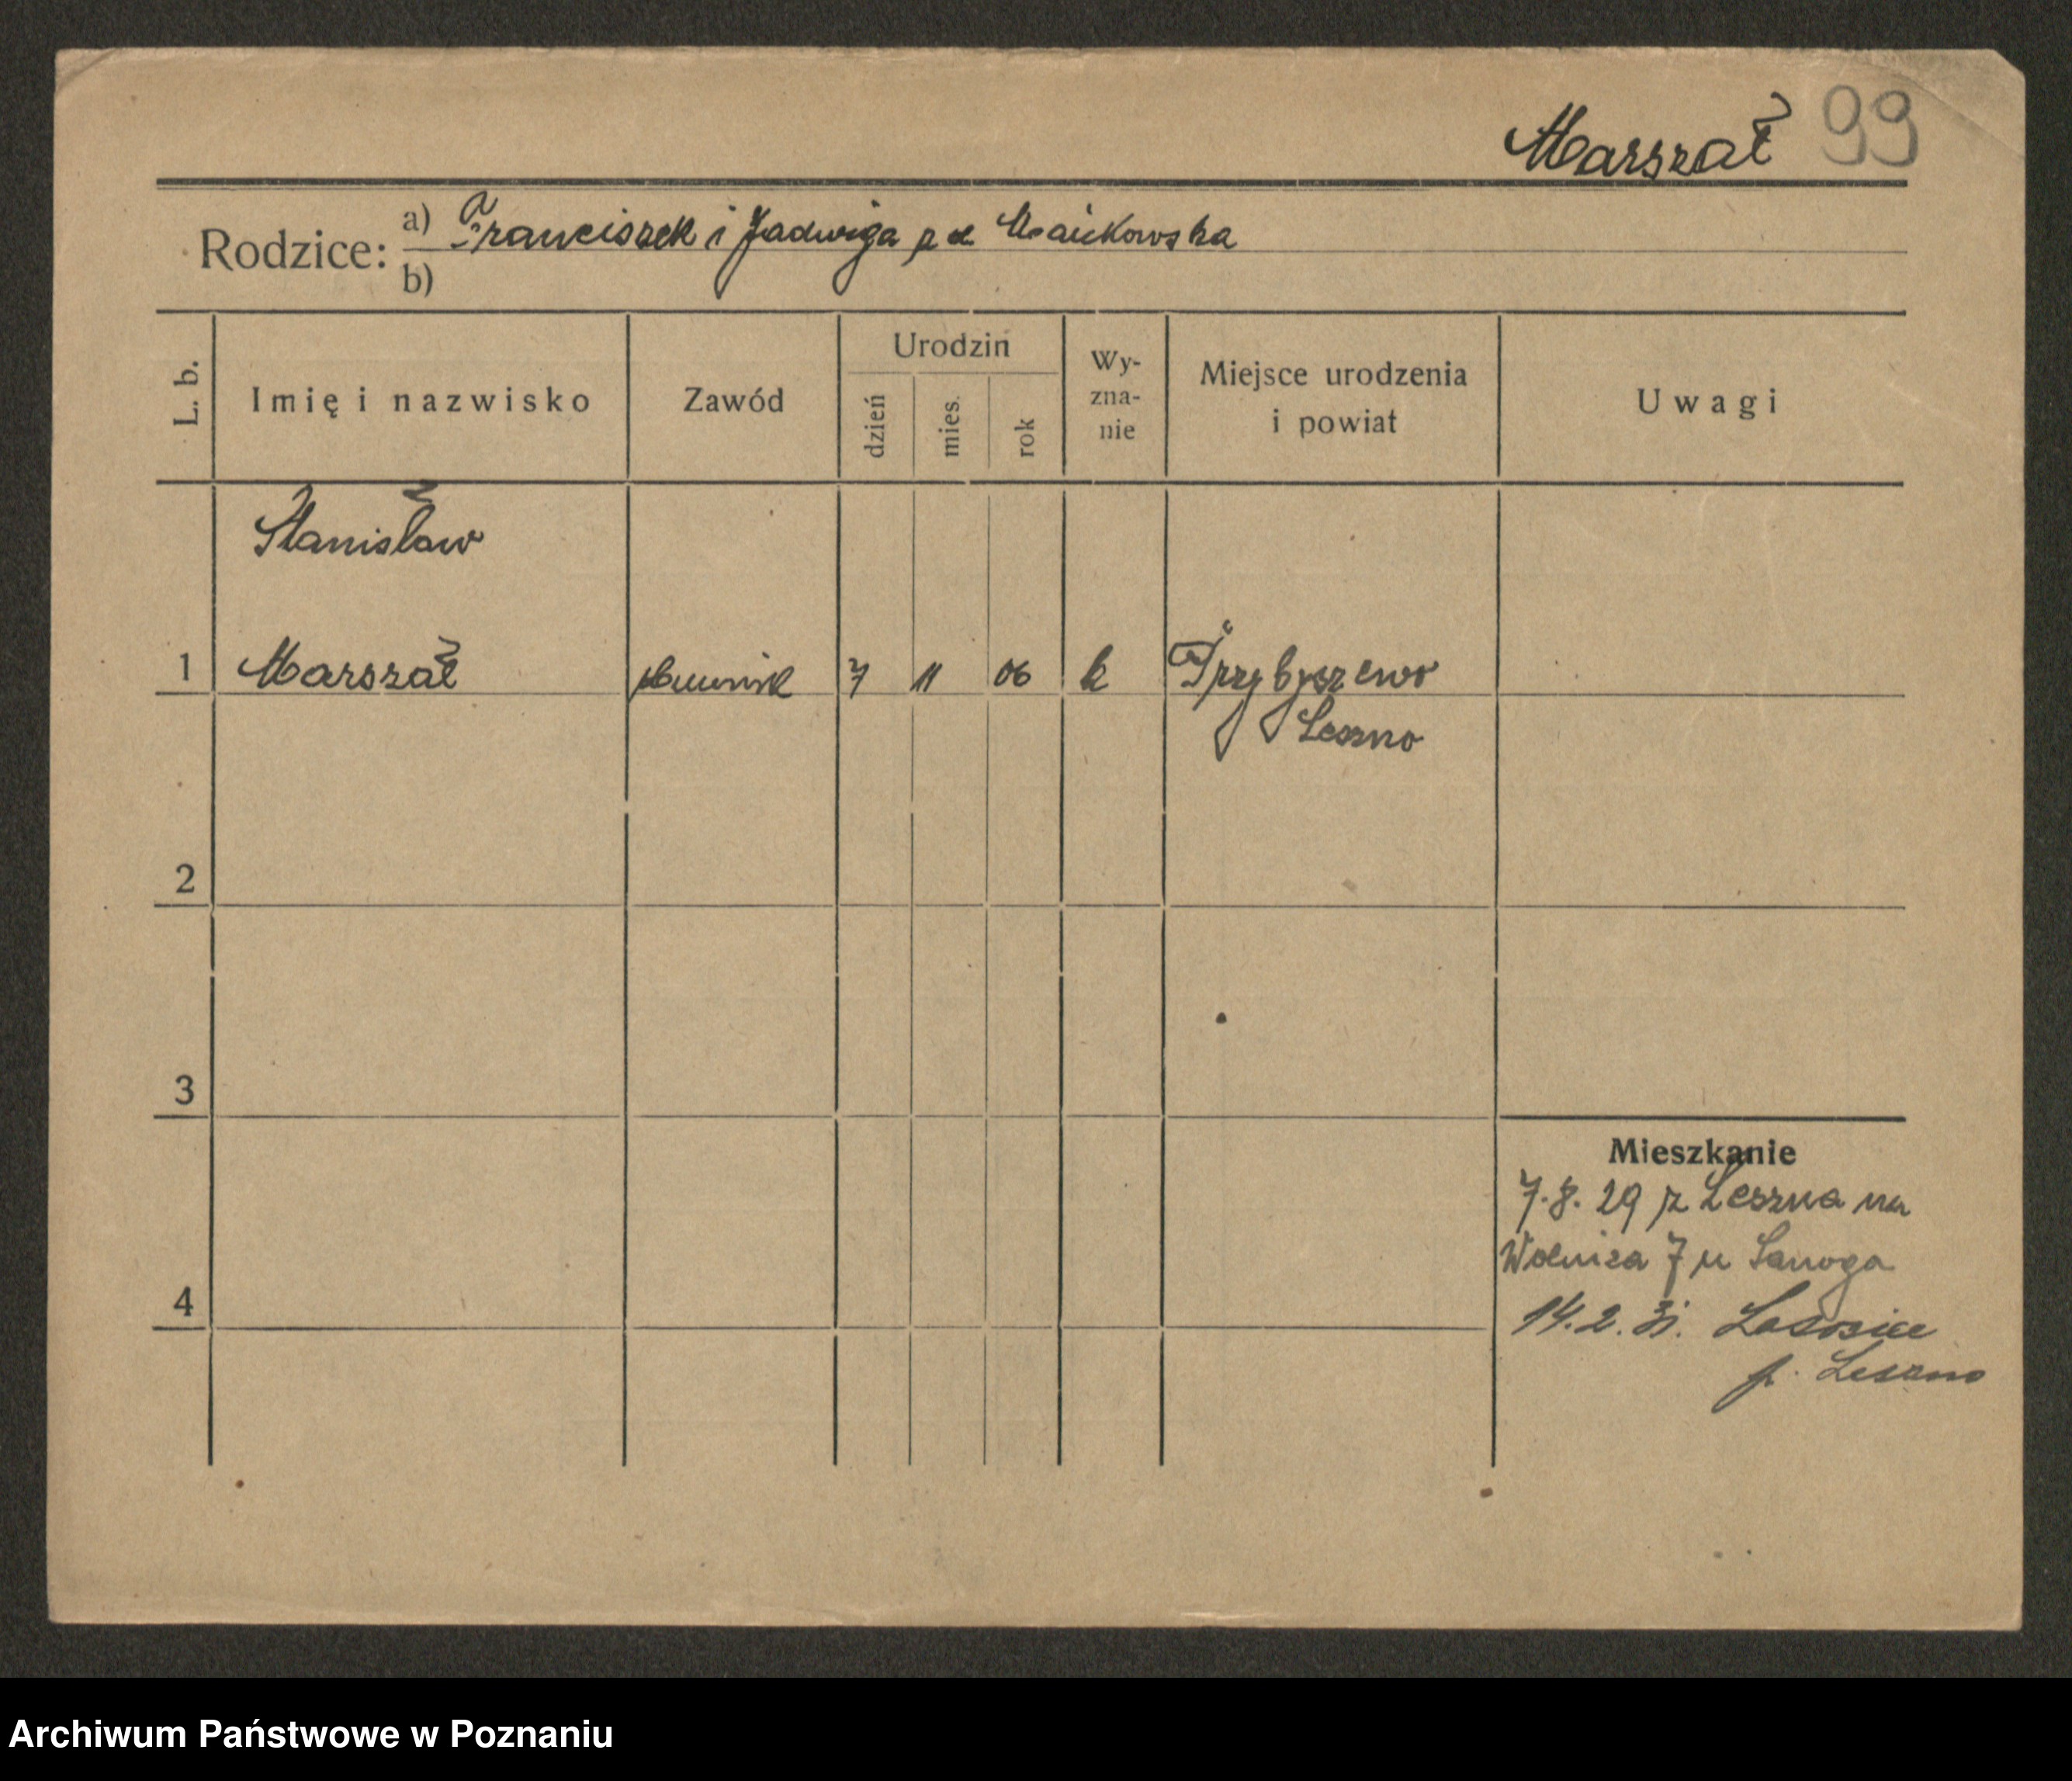 Marszał 99
Rodzice: a) Franciszek i Jadwiga z d.
b)
L. b.
Imię i nazwisko
Zawód
Urodzin
dzień
mies.
rok
Wy-
zna-
nie
Miejsce urodzenia
i powiat
Uwagi
Stanisław
1 Marszał 7 11 06 k Przybyszewo
Leszno
2
3
4
Mieszkanie
7.8.29 z Leszna na
Wolnica 7 u
14.2.31. Lasocice
p. Leszno
Archiwum Państwowe w Poznaniu